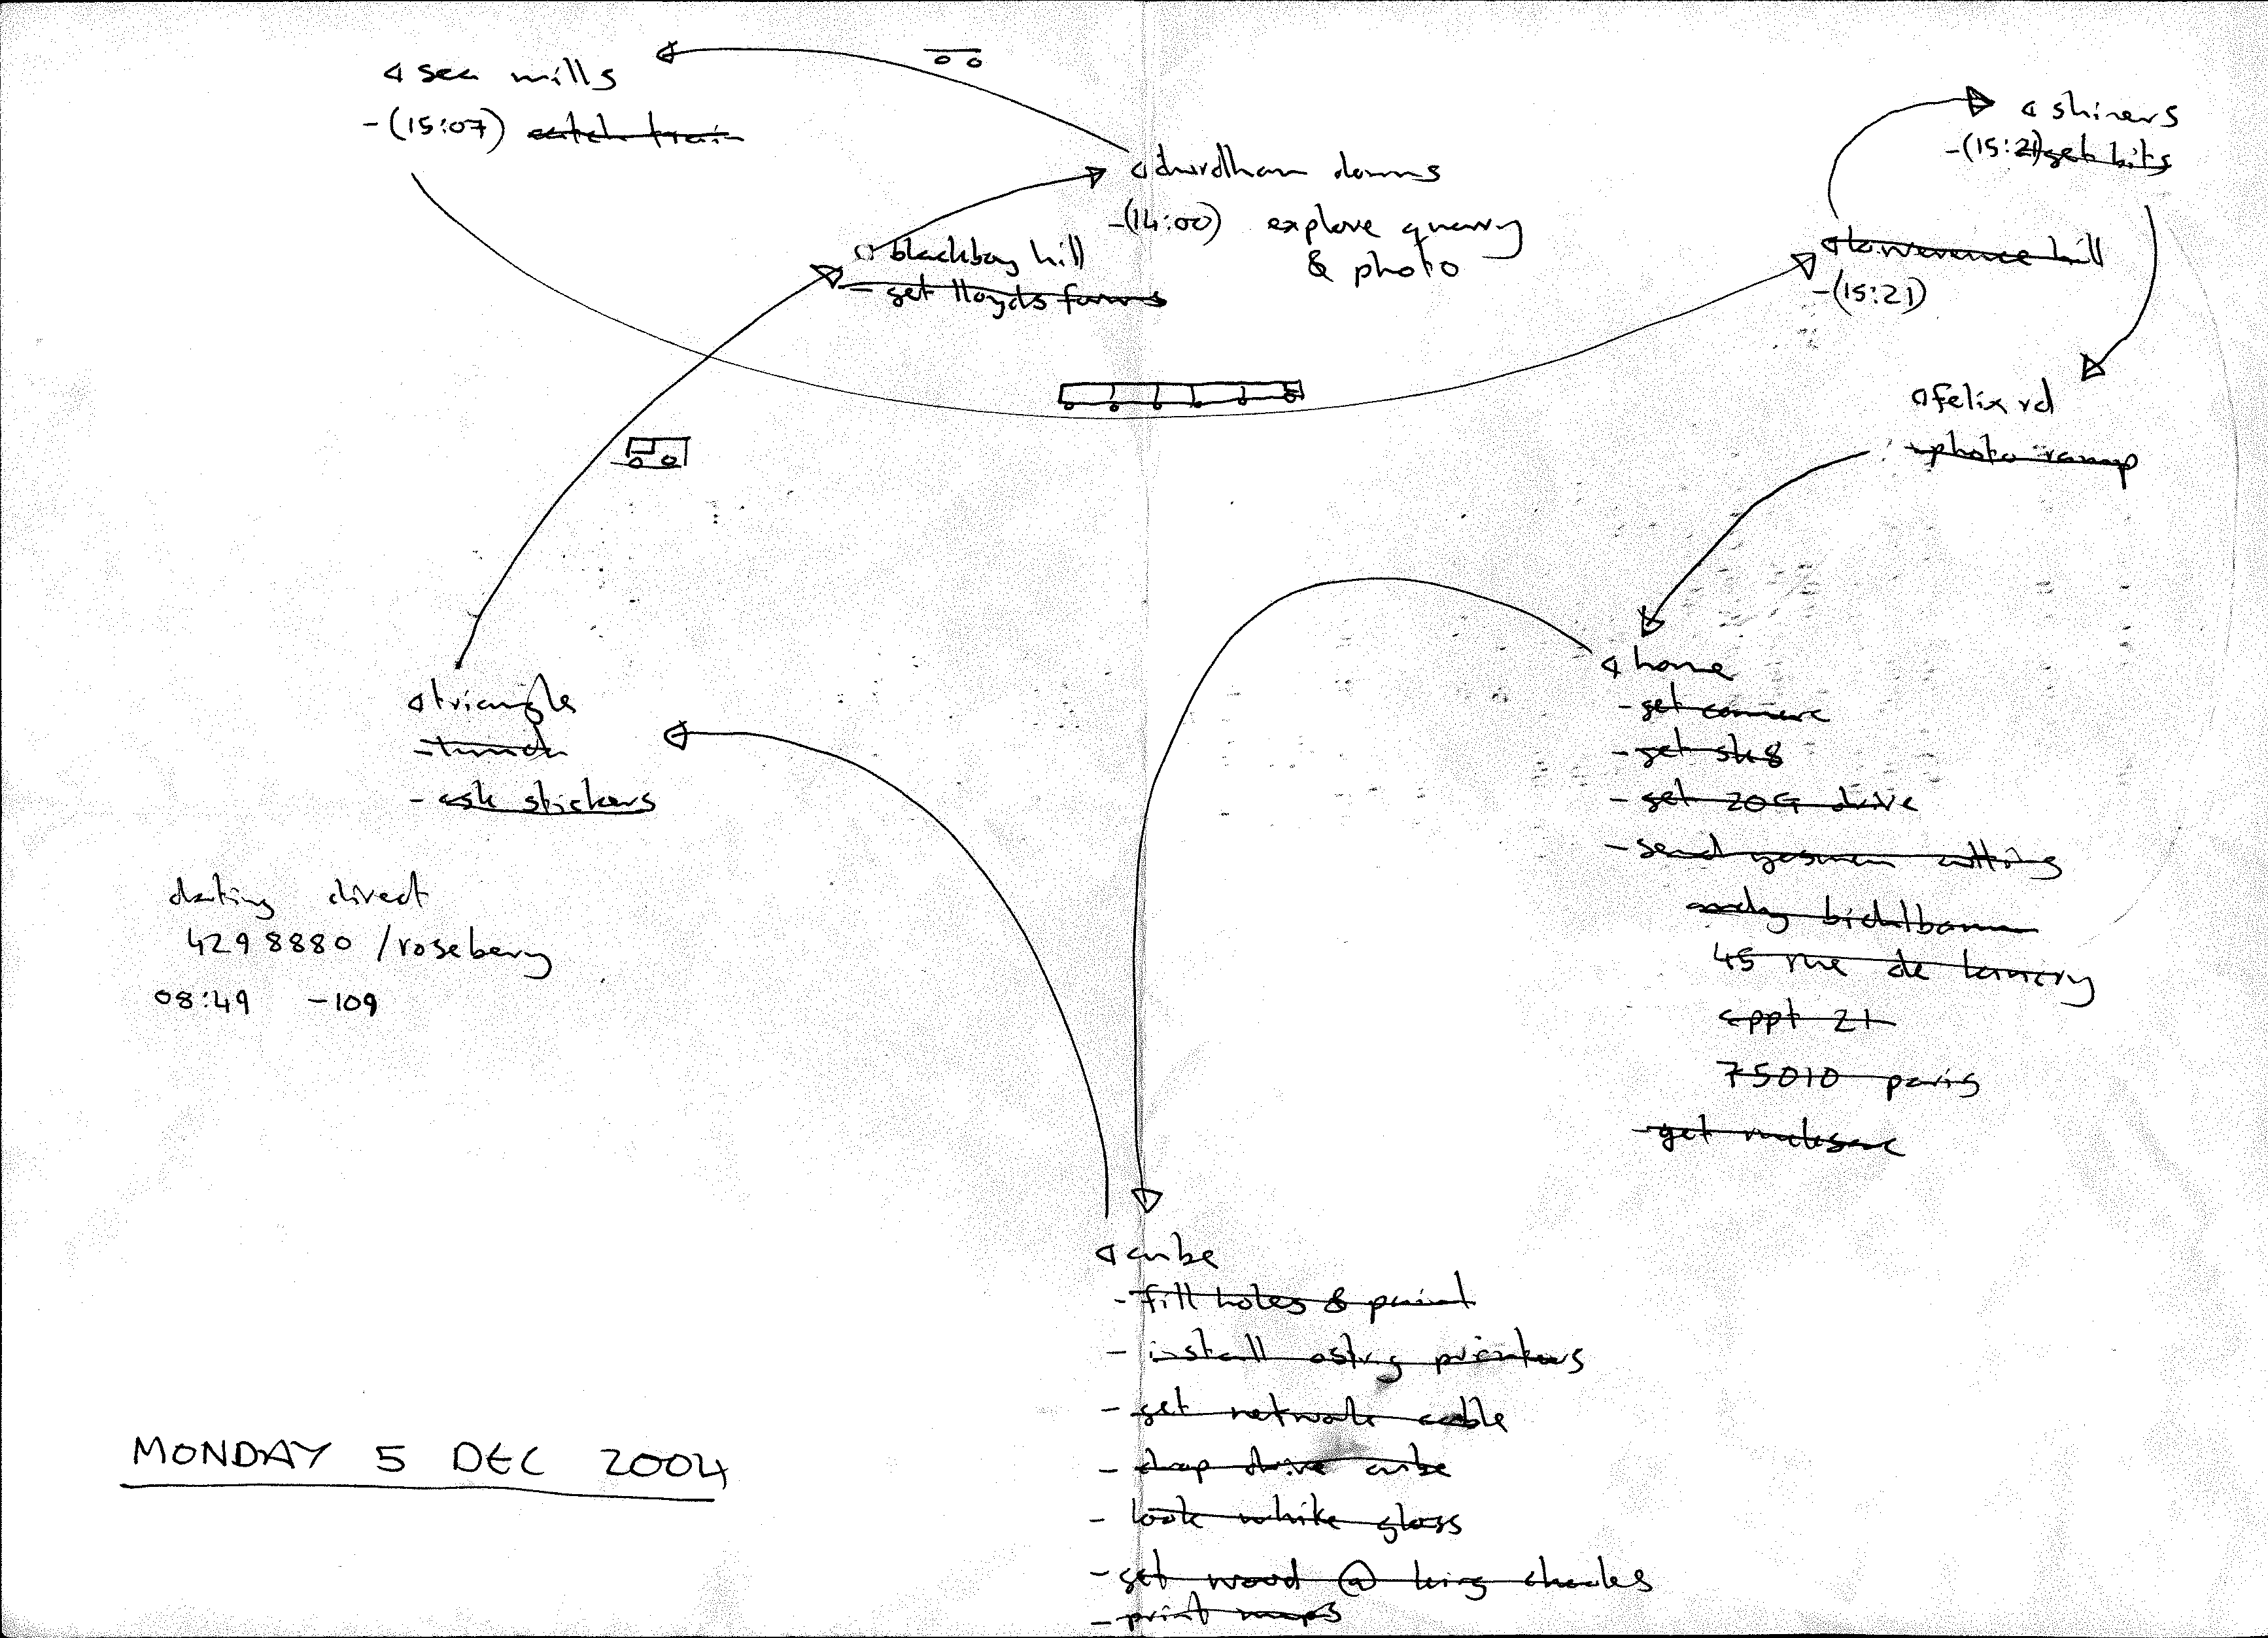 sea mills
-(15:07) catch train
durdham downs
-(14:00) explore quarry
& photo
blackboy hill
- get lloyds farms
shiners
-(15:21) get bits
lawerence hill
-(15:21)
felix rd
- photo ramp
home
- get camera
- get sk8
- get 20G drive
- send yesmen cutting
andy bichlbaum
45 rue de lancry
appt 21
75010 paris
- get rucksac
triangle
- lunch
- ask stickers
dating direct
4298880 / rosebery
08:49 -109
cube
- fill holes & paint
- install printers
- get network cable
- drop drive cube
- look white gloss
- get wood @ king charles
- print maps
MONDAY 5 DEC 2004